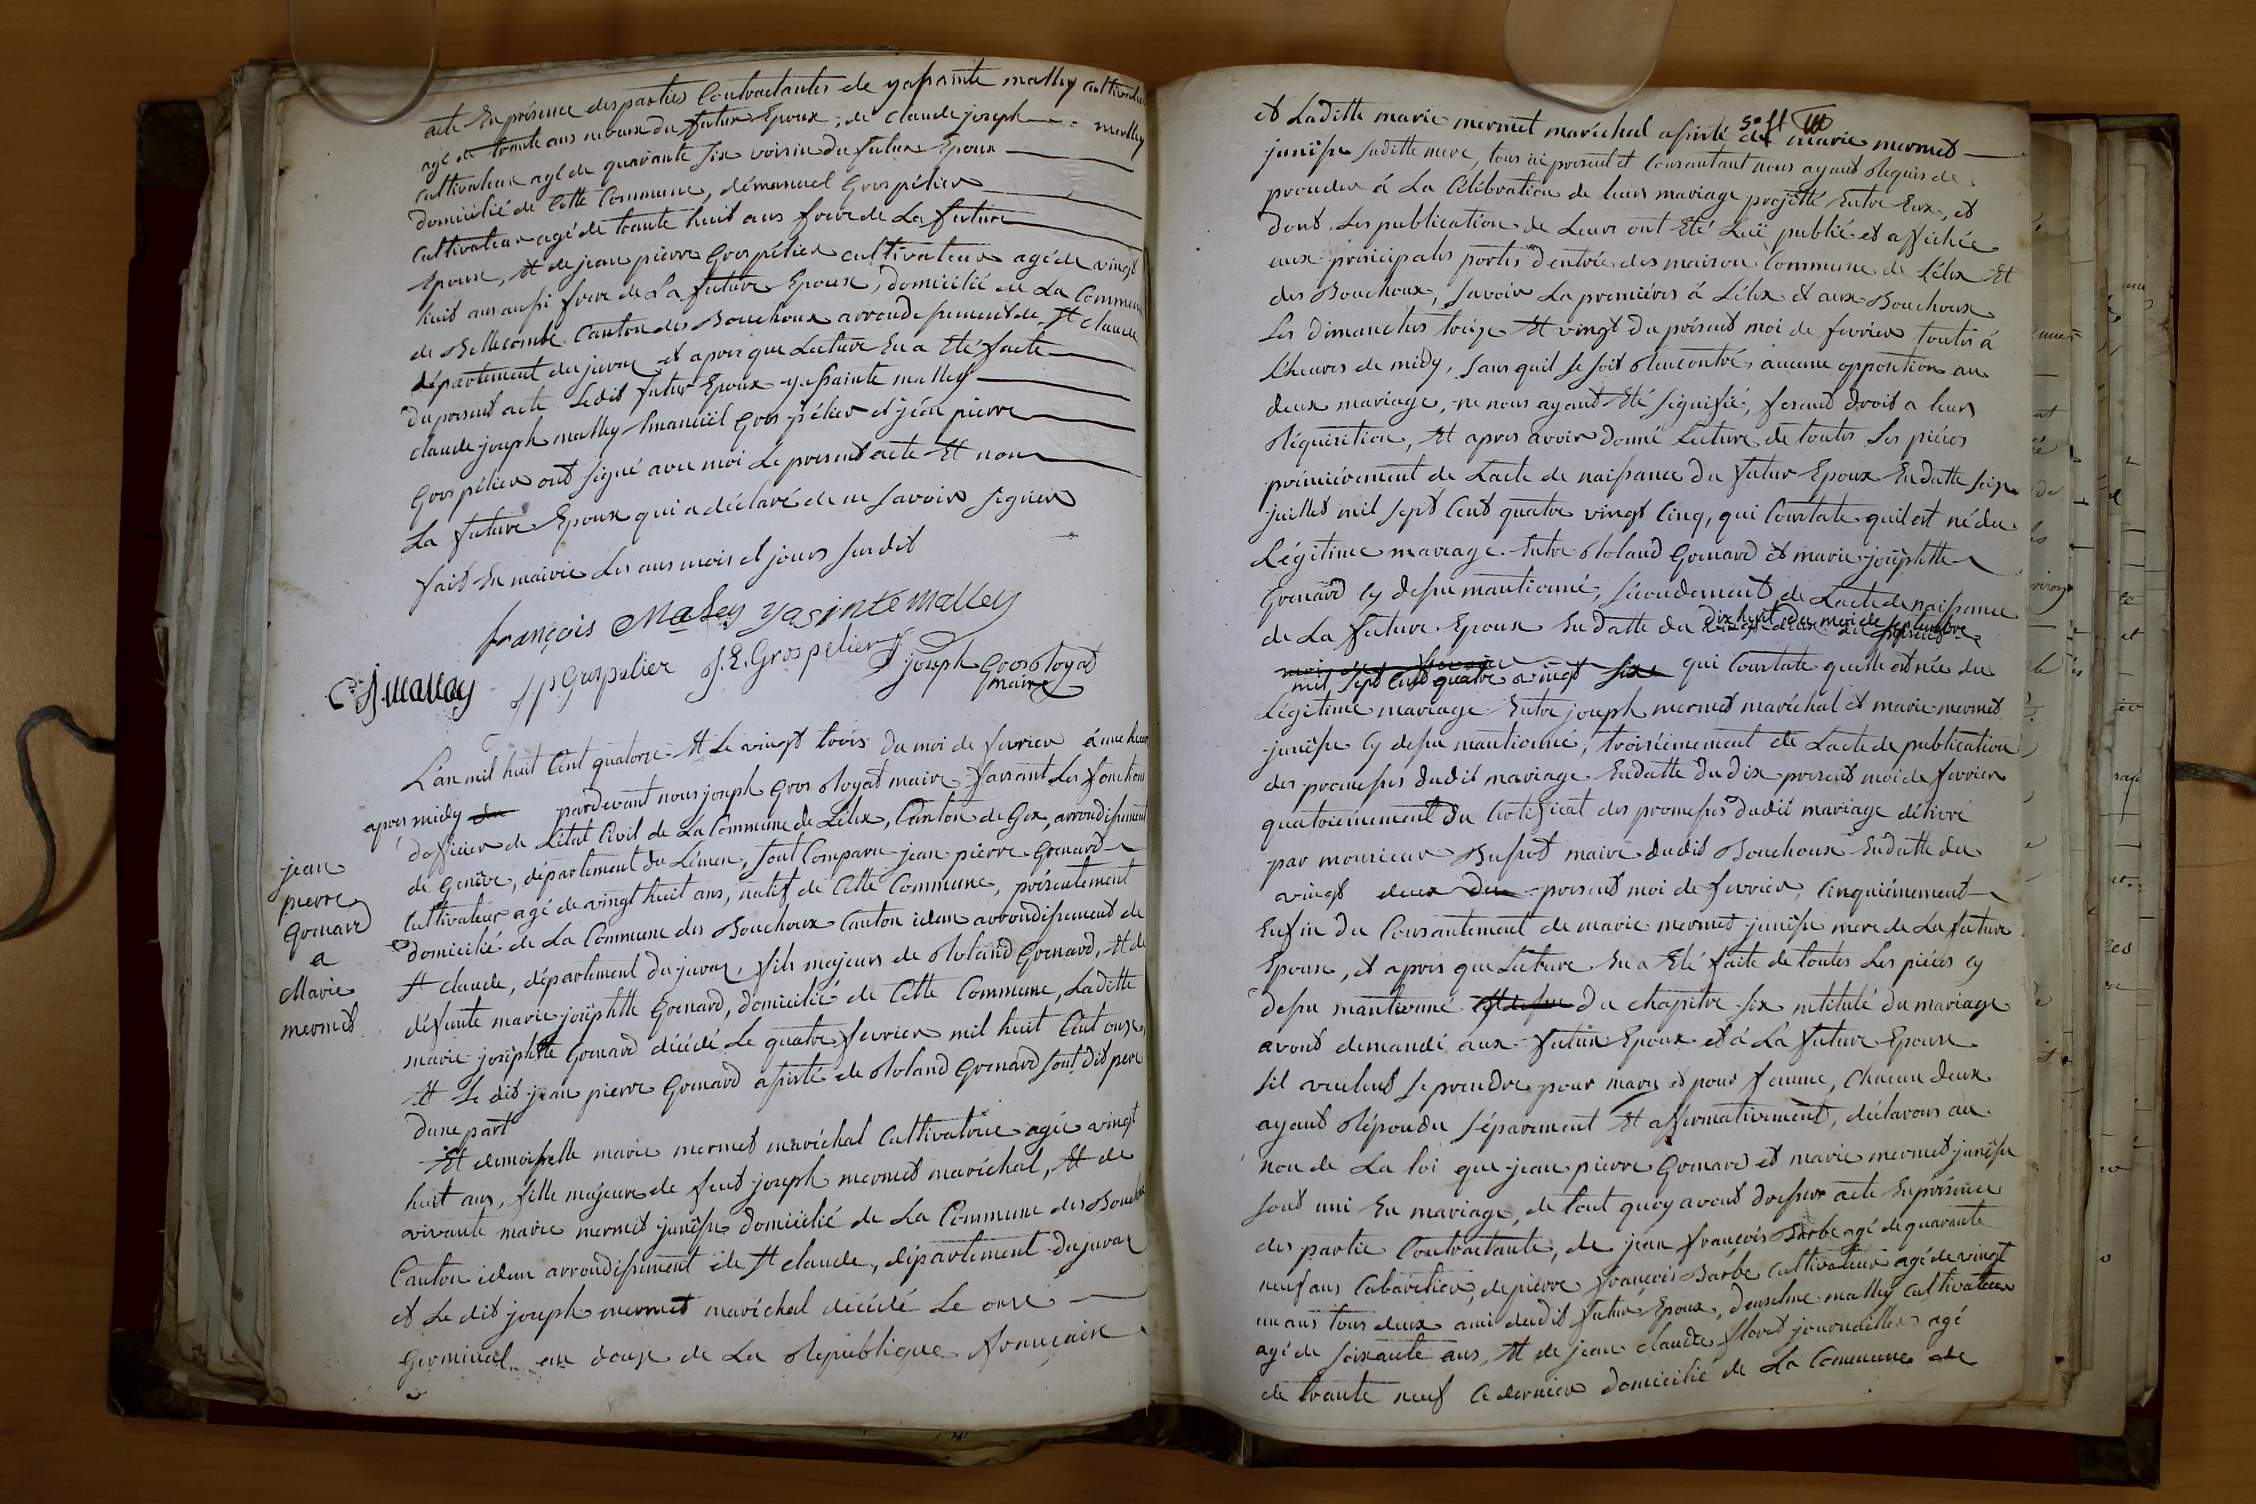 acte En présence des parties Contractantes de yassainte malley cultivateur
agé de trante ans neveux du futur Epoux, de claude joseph malley
cultivateur agé de quarante six voisin du futur Epoux
domicilié de Cette Commune, démanuel Grospélier
Cultivateur agé de trante huit ans frere de La future
Epouse, Et de jean pierre Grospélier cultivateur agé de vingt
huit ans aussi frere de La future Epouse, domicilié de La Commune
de Bellecombe Canton des Bouchoux arrondissement de St claude
département du jura, et apres que Lecture En a Eté faite
du present acte Ledit futur Epoux yassainte malley
claude joseph malley Emanuël Grospélier et jéan pierre
Grospélier ont signé avec moi Le present acte Et non
La future Epouse qui a déclaré de ne savoir signer
fait En mairie Les ans mois et jours sus dit
françois Maley yasinte malley
CJ malley J P Grospelier J. E. Grospelier joseph Grosroyat
maire
L'an mil huit Cent quatorze Et Le vingt trois du moi de fevrier á une heure
apres midy du pardevant nous joseph Gros Royat maire faisant Les fonctions
dofficier de L'état Civil de La Commune de Lélex, Canton de Gex, arrondissement
de Genêve, département du Léman, sont Comparu jean pierre Grenard
Cultivateur agé de vingt huit ans, natif de Cette Commune, présentement
domicilié de La Commune des Bouchoux Canton idem arrondissement de
St claude, département du jura, fils majeurs de Roland Grenard, Et de
défunte marie joséphtte Grenard, domicilié de Cette Commune, Laditte
marie joséphtte Grenard décédé Le quatre fevrier mil huit Cent onze,
Et Le dit jean pierre Grenard assisté de Roland Grenard sont dit pere
dune part
jean
pierre
Grenard
a
Marie
mermet
Et demoiselle marie mermet maréchal Cultivatrice agée vingt
huit ans, fille majeure de feut joseph mermet maréchal, Et de
vivante marie mermet junësse domicilié de La Commune des Bouchoux
Canton idem arrondissement de St claude, département du jura
et Le dit joseph mermet maréchal décédé Le onze
Germinal an douze de La République française
et Laditte marie mermet maréchal assisté de marie mermet
junësse saditte mere, tous ici present et Consantant nous ayant Requis de
proceder á La Célébration de leurs mariage projetté Entre Eux, et
dont Les publication de Leurs ont Eté Luë publié et affichée
aux principales portes d'entrée des maison Commune de Lélex Et
des Bouchoux, savoir La premiéres á Lélex et aux Bouchoux
Les dimanches treize Et vingt du présent moi de fevrier toutes á
L'heures de midy, sans quil se soit Rencontrés aucune opposition au
deux mariage, ne nous ayant Eté signifié, fesant droit a leurs
Réquisition, Et apres avoir donné Lecture de toutes Les piéces
prémiérement de Lacte de naissance du futur Epoux En datte seize
juillet mil sept Cent quatre vingt Cinq, qui Constate quil est né du
Légitime mariage Entre Roland Grenard et marie joséphtte
Grenard Cy dessu mantionné, sécondement de Lacte de naissance
de La future Epouse En datte du dix huit du moi de septembre
mil sept Cent quatre vingt six qui Constate quelle est née du
Légitime mariage Entre joseph mermet maréchal et marie mermet
junësse Cy dessu mantionné, troisiémement de Lacte de publication
des promesses dudit mariage En datte du dix present moi de fevrier
quatriémement du Certificat des promesses dudit mariage délivré
par monsieur Bussod maire dudit Bouchoux En datte du
vingt deux du present moi de fevrier, Cinquiémement
Enfin du Consantement de marie mermet junësse mere de La future
Epouse, et apres que Lecture En a Eté faite de toutes Les piéces Cy
dessu mantionné du chapitre six intitulé du mariage
avont demandé aux futur Epoux et á La future Epouse
sil veulent se prendre pour mary et pour femme, chacun deux
ayant Répondu séparement Et affirmativement, déclarons au
non de La loi que jean pierre Grenard et marie mermet junësse
sont uni En mariage, de tout quoy avont dressur acte En présence
des partie Contractante, de jean françois Barbe agé de quarante
neuf ans Cabaretier, de pierre françois Barbe Cultivateur agé de vingt
un ans tous deux ami dudit futur Epoux, d'enselme malley Cultivateur
agé de soixante ans, Et de jean claude floret journailler agé
de trante neuf Ce dernier domicilié de La Commune de